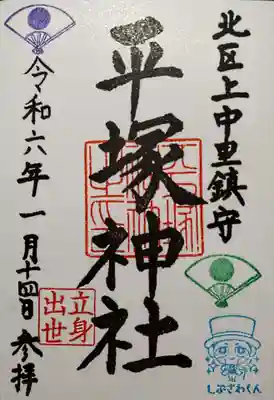 北区上中里鎮守
平塚神社
令和六年一月十四日 参拝
立身
出世
しぶざわくん